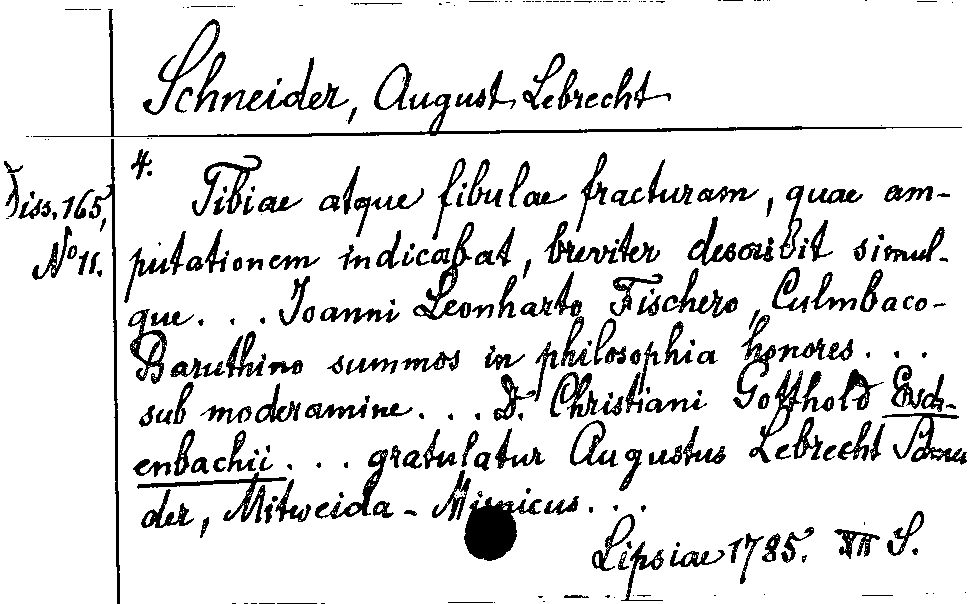 Schneider, August Lebrecht
4.
Diss. 165,
No 11.
Tibiae atque fibulae fracturam, quae am-
putationem indicabat, breviter describit simul-
que . . . Joanni Leonharto Fischero, Culmbaco-
Baruthino summos in philosophia honores . . .
sub moderamine . . . D. Christiani Gotthold Esch-
enbachii . . . gratulatur Augustus Lebrecht Schnei
der, Mitweida - Misnicus . . .
Lipsiae 1785. XII S.